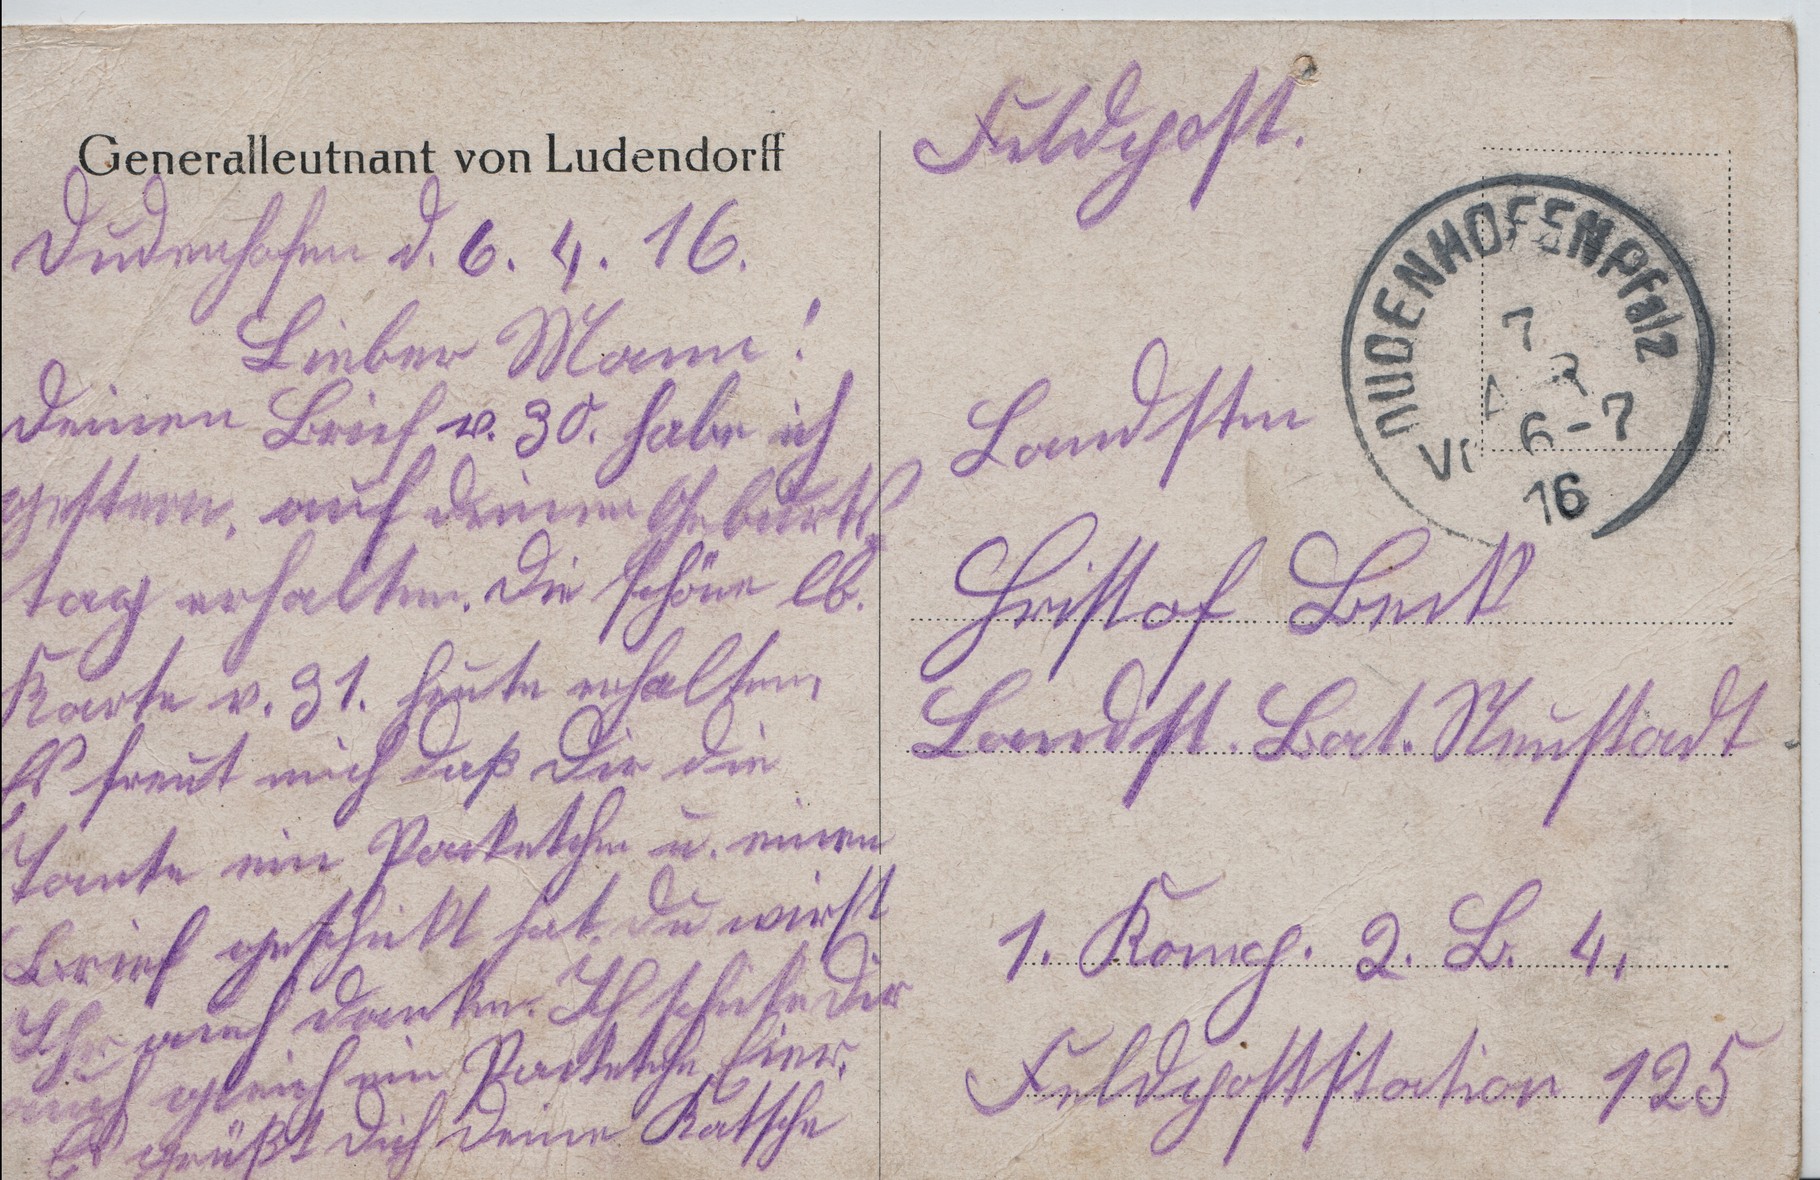 Generalleutnant von Ludendorff
Dudenhofen d. 6. 4. 16.
Lieber Mann!
Deinen Brief v. 30. habe ich
gestern, auf deinen Geburts
tag erhalten. Die schöne lb.
Karte v. 31. heute erhalten,
Es freut mich daß Dir die
Tante ein Packetchen u. einen
Brief geschikt hat. Du wirst
Ihr auch danken. Ich schike Dir
auch gleich ein Packetche Eier.
Es grüßt Dich Deine Katsche
Feldpost.
DUDENHOFEN Pfalz
7
6-7
16
Landstm
Christof Beck
Landst. Bat. Neustadt
1. Komp. 2. B. 4.
Feldpoststation 125